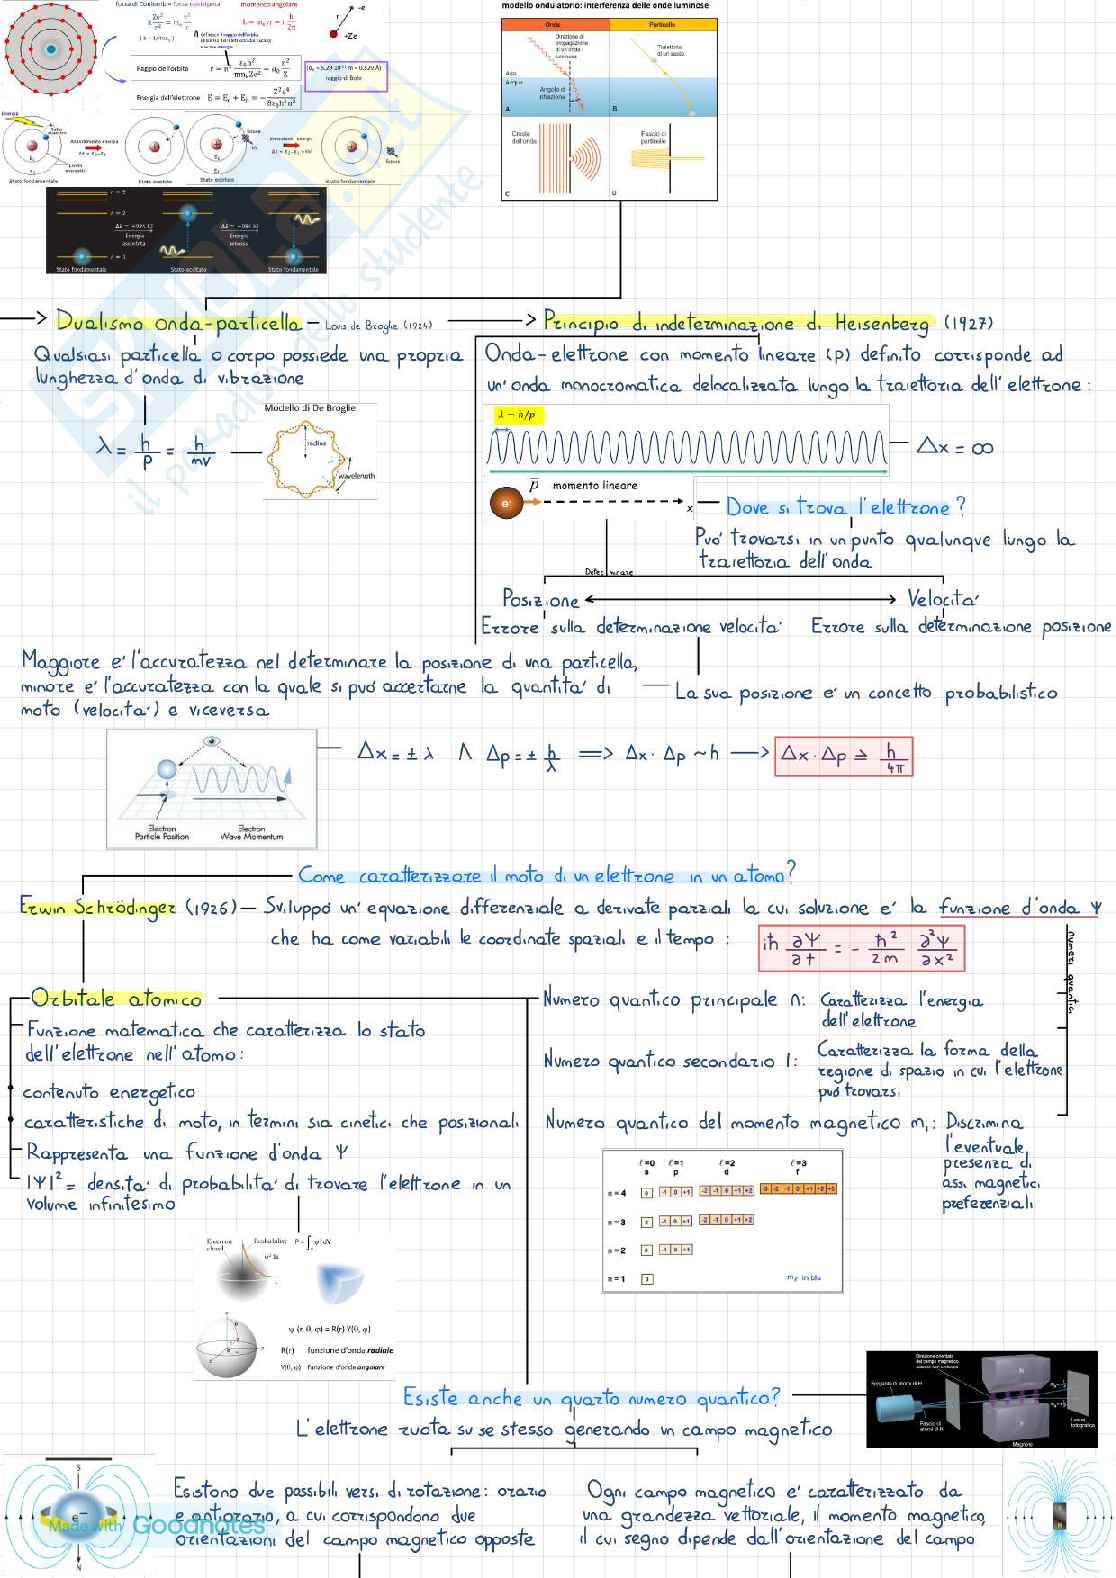 momento angolare
+Ze
Raggio dell'orbita
raggio di Bohr
Energia dell'elettrone
Stato fondamentale
Stato eccitato
Stato eccitato
Stato fondamentale
Energia assorbita
Energia emessa
Stato fondamentale
Stato eccitato
Stato fondamentale
modello ondulatorio: interferenza delle onde luminose
Onda
Particelle
Direzione di propagazione di un'onda luminosa
Traiettoria di un sasso
Aria
Acqua
Angolo di rifrazione
A
B
Creste dell'onda
Fascio di particelle
C
D
Dualismo onda-particella – Louis de Broglie (1924)
Principio di indeterminazione di Heisenberg (1927)
Qualsiasi particella o corpo possiede una propria
lunghezza d'onda di vibrazione
λ = h/p = h/mv
Modello di De Broglie
radius
wavelength
Onda-elettrone con momento lineare (p) definito corrisponde ad
un'onda monocromatica delocalizzata lungo la traiettoria dell'elettrone:
λ = h/p
Δx = ∞
e-
p momento lineare
x
Dove si trova l'elettrone?
Può trovarsi in un punto qualunque lungo la
traiettoria dell'onda
Posizione
Velocità
Errore sulla determinazione velocità
Errore sulla determinazione posizione
Maggiore è l'accuratezza nel determinare la posizione di una particella,
minore è l'accuratezza con la quale si può accertarne la quantità di
moto (velocità) e viceversa
La sua posizione è un concetto probabilistico
Electron Particle Position
Electron Wave Momentum
Δx = ± λ Λ Δp = ± h/λ => Δx · Δp ~ h —> Δx · Δp ≥ h/4π
Come caratterizzare il moto di un elettrone in un atomo?
Erwin Schrödinger (1926) – Sviluppò un'equazione differenziale a derivate parziali la cui soluzione è la funzione d'onda Ψ
che ha come variabili le coordinate spaziali e il tempo :
iħ ∂Ψ/∂t = - ħ²/2m ∂²Ψ/∂x²
numeri quantici
Orbitale atomico
Funzione matematica che caratterizza lo stato
dell'elettrone nell'atomo:
contenuto energetico
caratteristiche di moto, in termini sia cinetici che posizionali
Rappresenta una funzione d'onda Ψ
|Ψ|² = densità di probabilità di trovare l'elettrone in un
volume infinitesimo
Numero quantico principale n: Caratterizza l'energia
dell'elettrone
Numero quantico secondario l: Caratterizza la forma della
regione di spazio in cui l'elettrone
può trovarsi
Numero quantico del momento magnetico ml: Discrimina
l'eventuale
presenza di
assi magnetici
preferenziali
ℓ=0 ℓ=1 ℓ=2 ℓ=3
s p d f
n = 4 0 -1 0 +1 -2 -1 0 +1 +2 -3 -2 -1 0 +1 +2 +3
n = 3 0 -1 0 +1 -2 -1 0 +1 +2
n = 2 0 -1 0 +1
n = 1 0
R(r) funzione d'onda radiale
Y(θ, φ) funzione d'onda angolare
Esiste anche un quarto numero quantico?
L'elettrone ruota su se stesso generando un campo magnetico
Fascio di atomi di H
Magnete
N
S
Esistono due possibili versi di rotazione: orario
e antiorario, a cui corrispondono due
orientazioni del campo magnetico opposte
Ogni campo magnetico è caratterizzato da
una grandezza vettoriale, il momento magnetico,
il cui segno dipende dall'orientazione del campo
S
e–
N
Made with Goodnotes
il paradiso dello studente